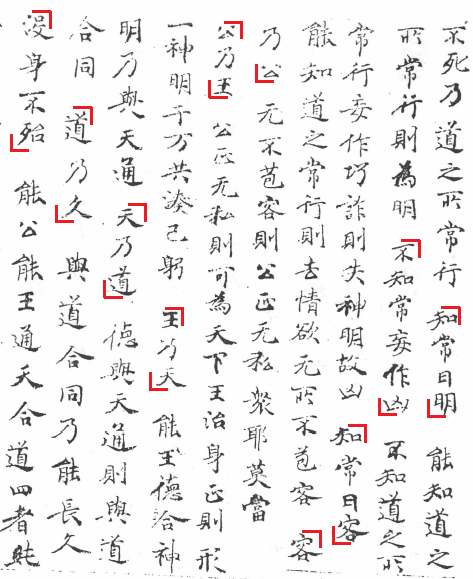 不死乃道之所常行知常曰明能知道之
所常行則為明不知常妄作凶不知道之所
常行妄作巧詐則失神明故凶知常曰容
能知道之常行則去情欲无所不苞容容
乃公无不苞容則公正无私衆耶莫當
公乃王公正无私則可為天下王治身正則形
一神明千万共湊己躬王乃天能王德洽神
明乃與天通天乃道德與天通則與道
合同道乃久與道合同乃能長久
沒身不殆能公能王通天合道四者純